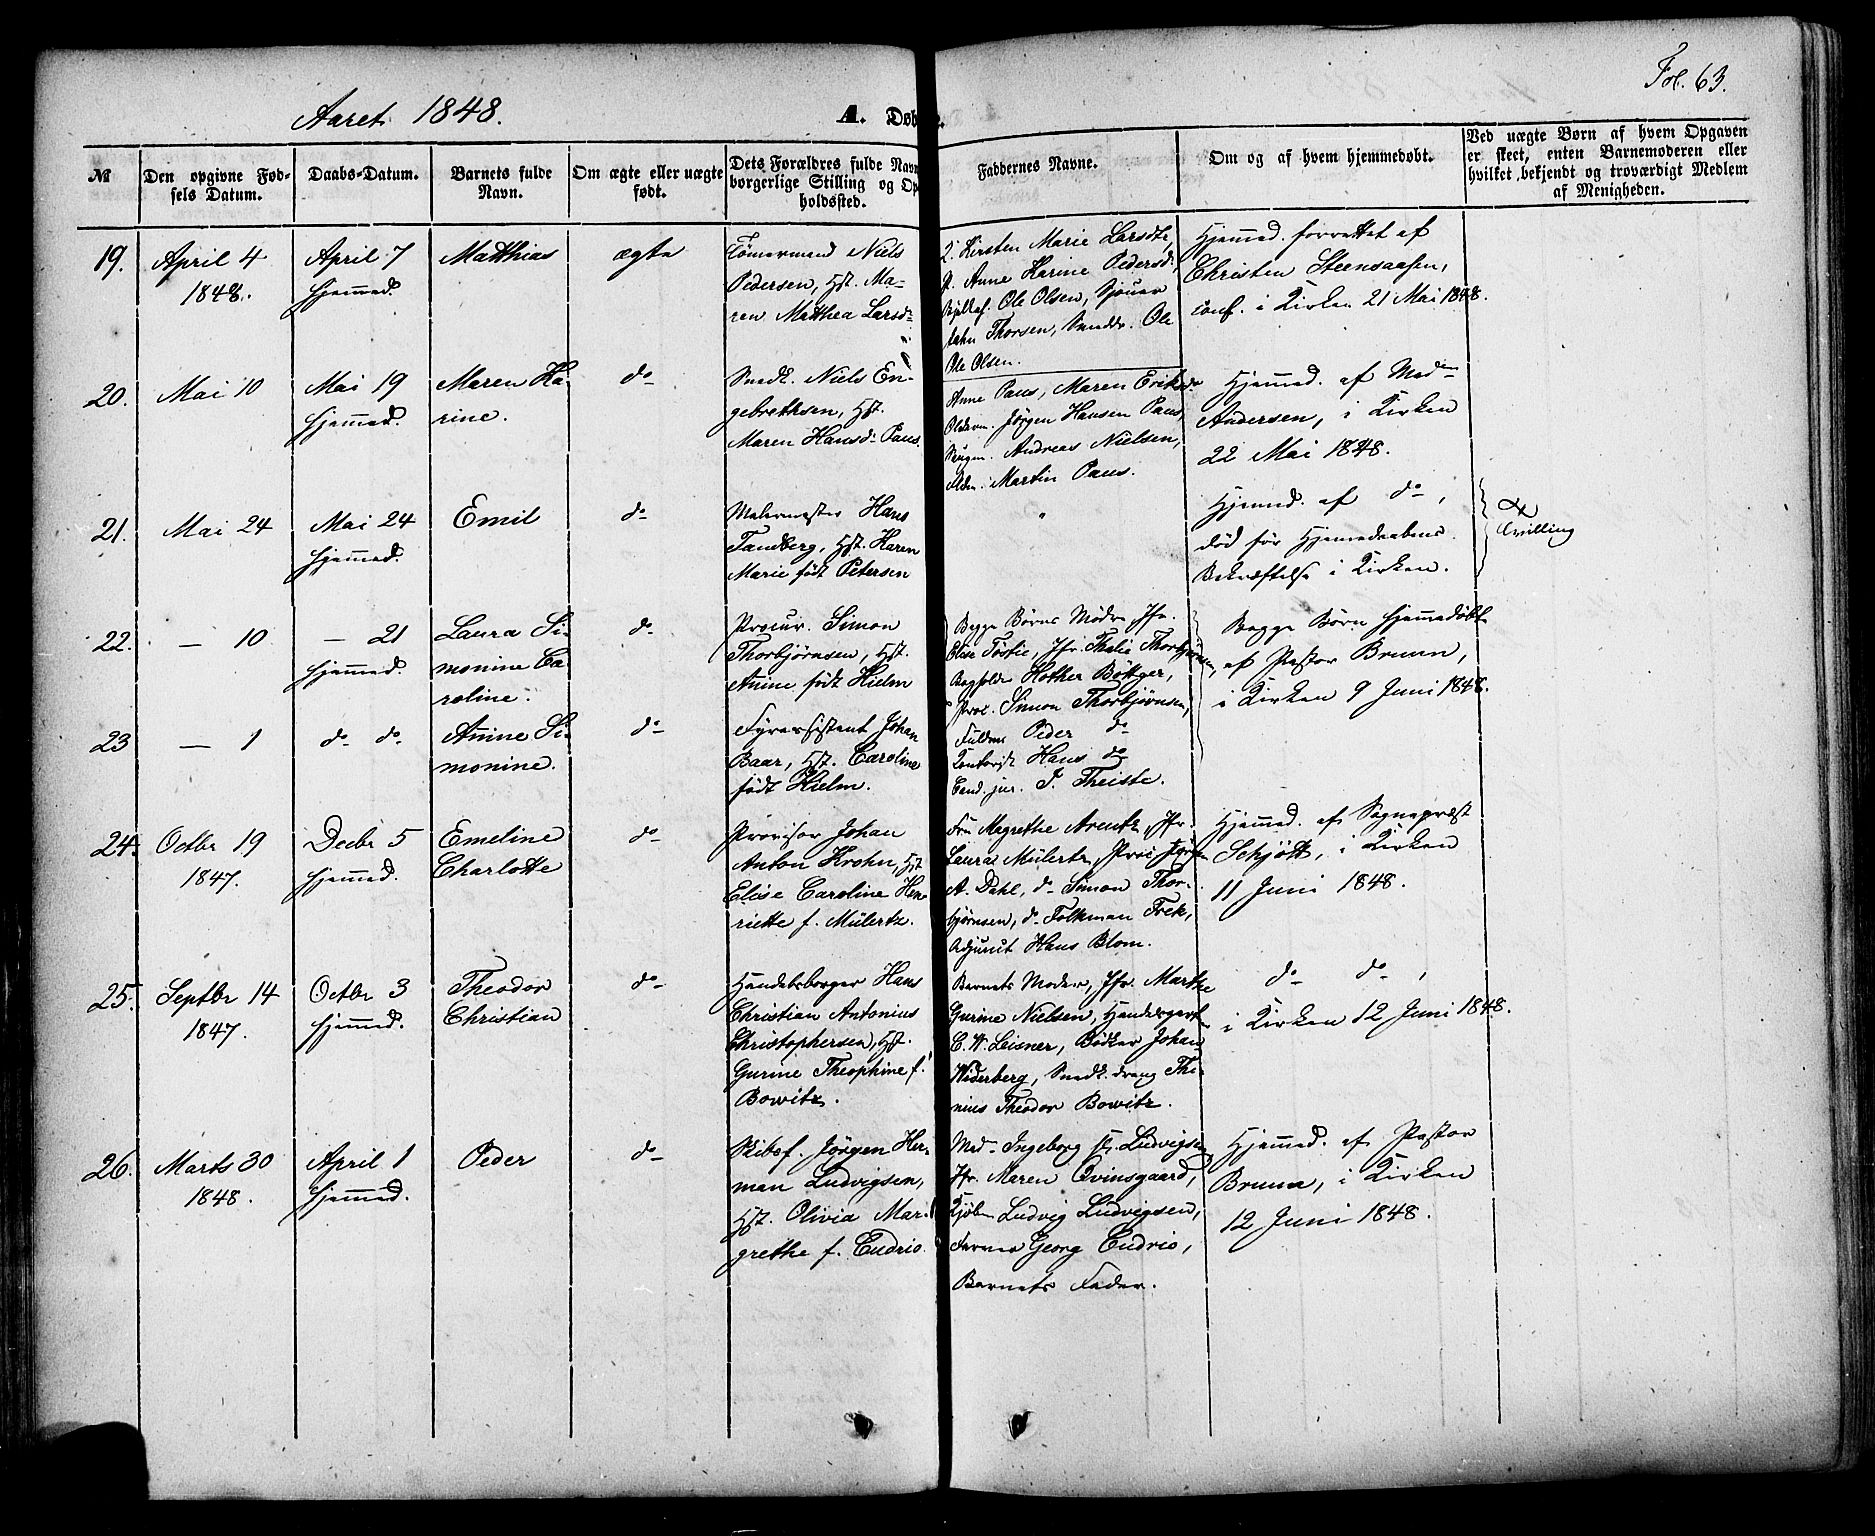 Fol. 63.
Aaret 1848.
A. Døb
№
Den opgivne Fød-
sels Datum.
Daabs-Datum.
Barnets fulde
Navn.
Om ægte eller uægte
født.
Dets Forældres fulde Navn
borgerlige Stilling og Op
holdssted.
Faddernes Navne.
Om og af hvem hjemmedøbt.
Ved uægte Børn af hvem Opgaven
er skeet, enten Barnemoderen eller
hvilket bekjendt og troværdigt Medlem
af Menigheden.
19.
April 4
1848.
April 7
hjemmed.
Matthias
ægte
Tömermand Niels
Pedersen, Hst. Ma-
ren Matthea Larsd:
Q. Kirsten Marie Larsdtr,
P. Anne Karine Pedersd.
Ole Olsen, Sjouer
Thorsen, Ole
Ole Olsen.
Hjemmed. forrettet af
Christen Steensaasen,
conf. i Kirken 21 Mai 1848.
20.
Mai 10
Mai 19
hjemmed.
Maren Ka-
rine.
do
Snedk. Niels En-
gebrethsen, Hst.
Maren Hansd: Paus.
Anne Paus, Maren Eriksd.
Jörgen Hansen Paus,
Andreas Nielsen,
Martin Paus.
Hjemmed. af Mad.
Andersen, i Kirken
22 Mai 1848.
21.
Mai 24
Mai 24
hjemmed.
Emil
do
Malermester Hans
Tandberg, Hst. Karen
Marie födt Petersen
"
Hjemmed. af do,
död för Hjemmedaabens
Bekræftelse i Kirken.
Tvilling
22.
— 10
— 21
hjemmed.
Laura Si-
monine Ca-
roline.
do
Procur. Simon
Thorbjørnsen, Hst.
Anine födt Hielm
Begge Børns Mødre Jfr.
Elise Jfr. Thalia Thorbjörnsen,
Hother Böttger,
Proc. Simon Thorbjørnsen,
Begge Børn hjemmedøbt
af Pastor Bruun,
i Kirken 9 Juni 1848.
23
— 1
do do
Anine Si-
monine.
do
Fyrassistent Johan
Baar, Hst. Caroline
födt Hielm.
Peder do
Hans do
Cand. jur. J. Theiste.
24.
Octbr 19
1847.
Decbr 5
hjemmed.
Emeline
Charlotte
do
Provisor Johan
Anton Krohn, Hst
Elise Caroline Hen
riette f. Mülertz.
Fru Magrethe Arentz, Jfr.
Laura Mülertz, Proc
A. Dahl, do Simon Thor-
bjørnsen, do Folkman Trek,
Adjunct Hans Blom.
Hjemmed. af Sognepræst
Schjött, i Kirken
11 Juni 1848.
25.
Septbr 14
1847.
Octbr 3
hjemmed.
Theodor
Christian
do
Handelsborger Hans
Christian Antonius
Christophersen, Hst.
Gurine Theophine f.
Bowitz.
Barnets Moder, Jfr. Marthe
Gurine Nielsen,
C. W. Leisner, Bödker Johan
Widerberg, Snedk.dreng Thi-
nius Theodor Bowitz.
do do,
i Kirken 12 Juni 1848.
26.
Marts 30
1848.
April 1
hjemmed.
Peder
do
Skibsf. Jörgen Her-
man Ludvigsen,
Hst. Olivia Mar-
grethe f. Cudrio.
Mad. Ingeborg Ludvigsen,
Jfr. Maren Qvinsgaard,
Kjöbm Ludvig Ludvigsen,
Farver Georg Cudrio,
Barnets Fader.
Hjemmed. af Pastor
Bruun, i Kirken
12 Juni 1848.